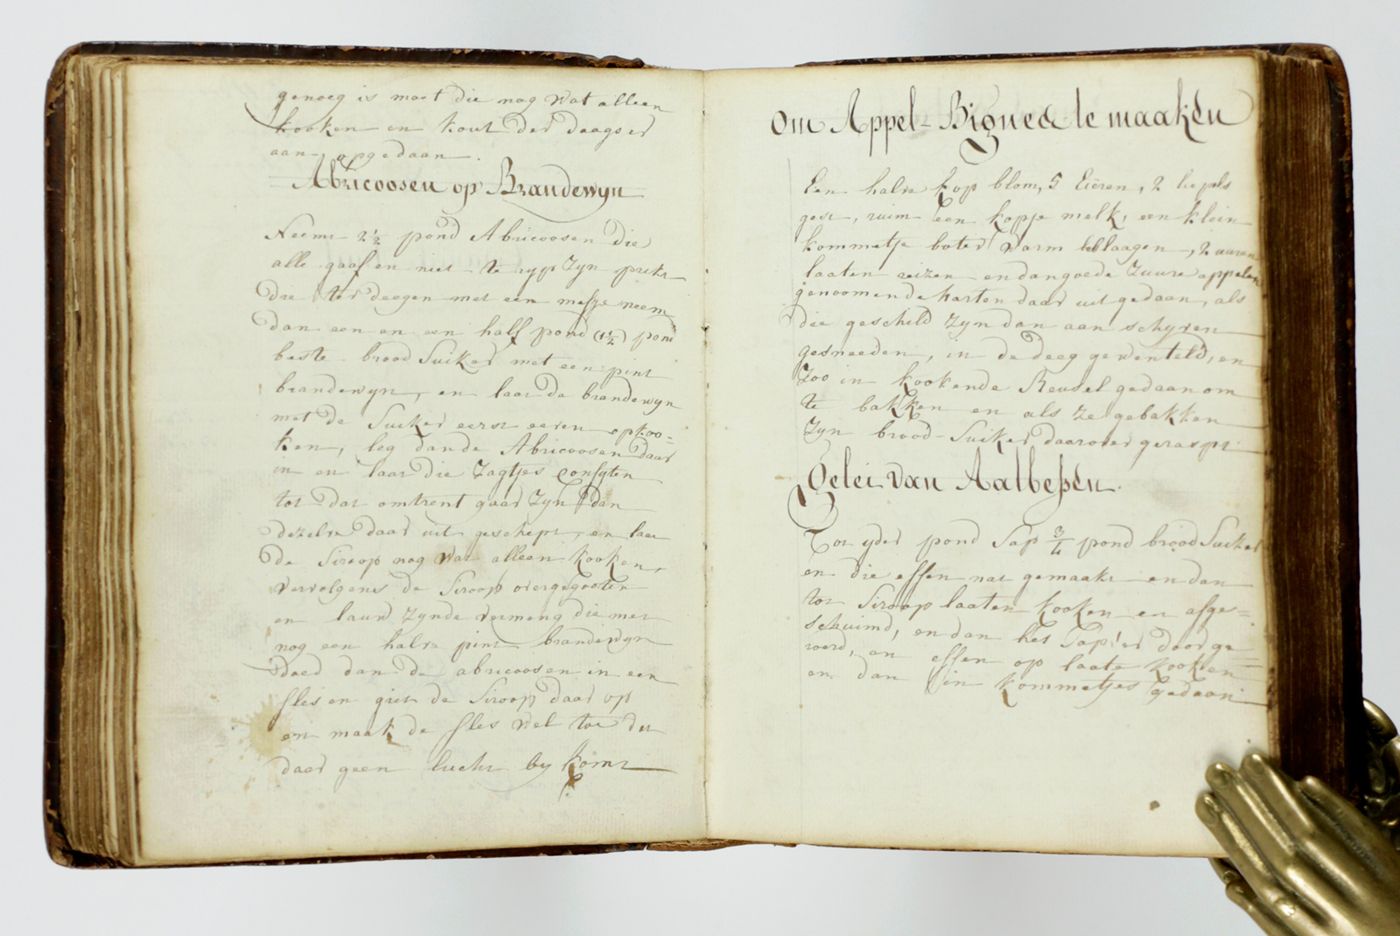 genoeg is moet die nog wat alleen
kooken en kout der daags er
aan opgedaan.
Abricoosen op Brandewyn
Neemt 2½ pond Abricoosen die
alle gaaf en niet te ryp zyn prikt
die ter deegen met een mesje neem
dan een en een half pond (1½) pond
beste brood Suiker met een pint
brandewyn, en laat de brandewyn
met de Suiker eerst eeven opkoo=
ken, leg dan de Abricoosen daar
in en laat die zagtjes
tot dat omtrent gaar zyn dan
dezelve daar uit geschept, en laat
de Siroop nog wat alleen kooken,
vervolgens de Siroop overgegooten
en lauw zynde vermeng die met
nog een halve pint brandewyn
doed dan de abricoosen in een
fles en giet de Siroop daar op
en maak de fles wel toe dat
daar geen lucht by komt
Om Appel-Bignea te maaken
Een halve kop blom, 5 Eieren, 2 lepels
gest, ruim een kopje melk, een klein
kommetje boter warm, 2 uuren
laaten reizen en dan goede zuure appelen
genoomen de harten daar uit gedaan, als
die geschild zyn dan aan schyven
gesneeden, in de deeg gewenteld, en
zoo in kookende Reusel gedaan om
te bakken en als ze gebakken
zyn brood-Suiker daar over geraspt.
Gelei van Aalbessen.
Tot yder pond Sap ¾ pond brood Suiker
en die effen nat gemaakt en dan
tot Siroop laaten kooken en afge=
schuimd, en dan het Sap'er door ge=
roerd, en effen op laate kooken
en dan in kommetjes gedaan